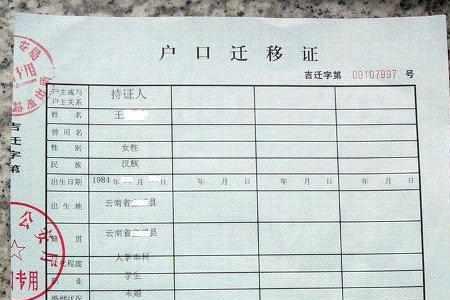 户口迁移证
吉迁字第 00107897 号
户主或与
户主关系 持证人
姓名 王
曾用名
性别 女性
民族 汉族
出生日期 1984 年 月 日 年 月 日 年 月 日
出生地 云南省 县
云南省 县
大学本科
学生
未婚
吉迁字第
专用